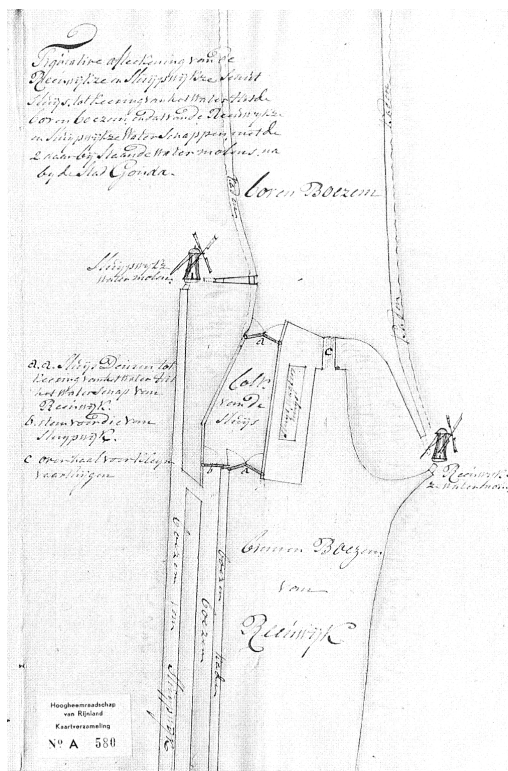 Figurative afteekening van de
Reeuwijkze en Sluypwijkze Schut
Sluys, tot keering van het Water uit de
boven boezem, en dat van de Reeuwijkze
en Sluijpwijkze Waterschappen, met de
2 daar bij staande Watermolens, na
bij de Stad Gouda.
boven Boezem
Sluijpwijkze
watermolen.
a
c
a.a. Sluijs Deuren tot
keering van het Water uit
het Waterschap van
Reeuwijk.
b. stem voor die van
Sluijpwijk.
c overhaal voor kleyne
vaartuijgen
Colk
van de
Sluijs
b
a
Reeuwijk
ze Watermolen
binnen Boezem
van
Reeuwijk
boezem van Sluijpwijk
boezem
Hoogheemraadschap
van Rijnland
Kaartverzameling
No A 580